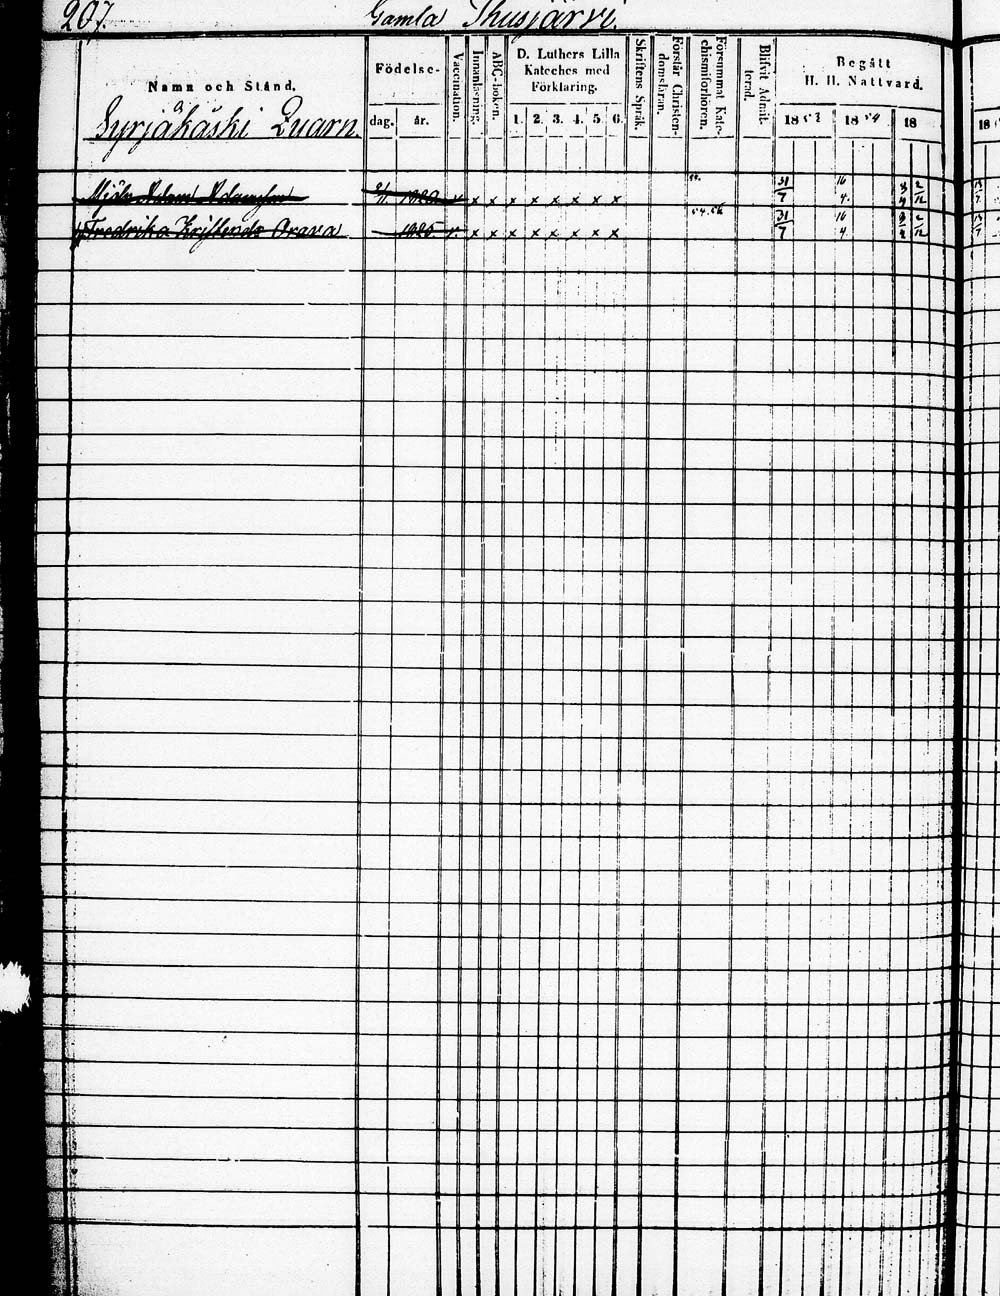 207. Gamla Thusjärvi.
Namn och Stånd.
Syrjäkoski Quarn.
Födelse-
dag. år.
Vaccination.
Innanläsning.
ABC-boken.
D. Luthers Lilla
Kateches med
Förklaring.
1. 2. 3. 4. 5. 6.
Skriftens Språk.
Förstår Christen-
domsläran.
Försummat Kate-
chismiförhören.
Blifvit Admit-
terad.
Begått
H. H. Nattvard.
1853 1854 18 18
Mjöln Adam Adamsson v x x x x x x x x 31/7 16/4 2/12
Fredrika Kristensdr Orava 1825 v. x x x x x x x x 54.56 31/7 16/4 2/12